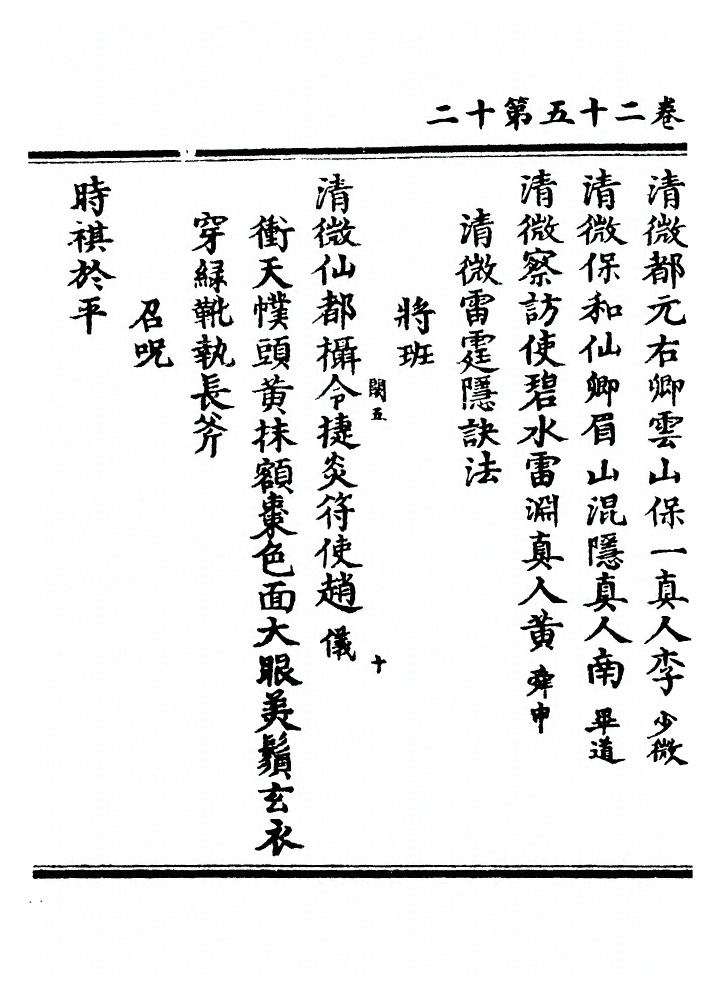 卷二十五第十二
清微都元右卿雲山保一真人李少微
清微保和仙卿眉山混隱真人南畢道
清微察訪使碧水雷淵真人黃舜申
清微雷霆隱訣法
將班
閑五 十
清微仙都攝令捷炎符使趙儀
衝天幞頭黃抹額棗色面大眼美鬚玄衣
穿綠靴執長斧
召呪
時祺於平